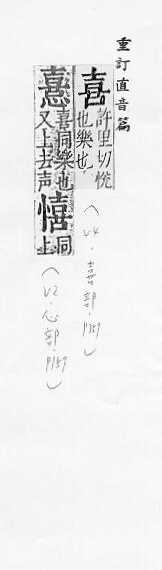 重訂直音篇
喜許里切悅
也樂也
（V4．喜部．P157）
憙喜同樂也
又上去声憘同
上
（V2．心部．P157）